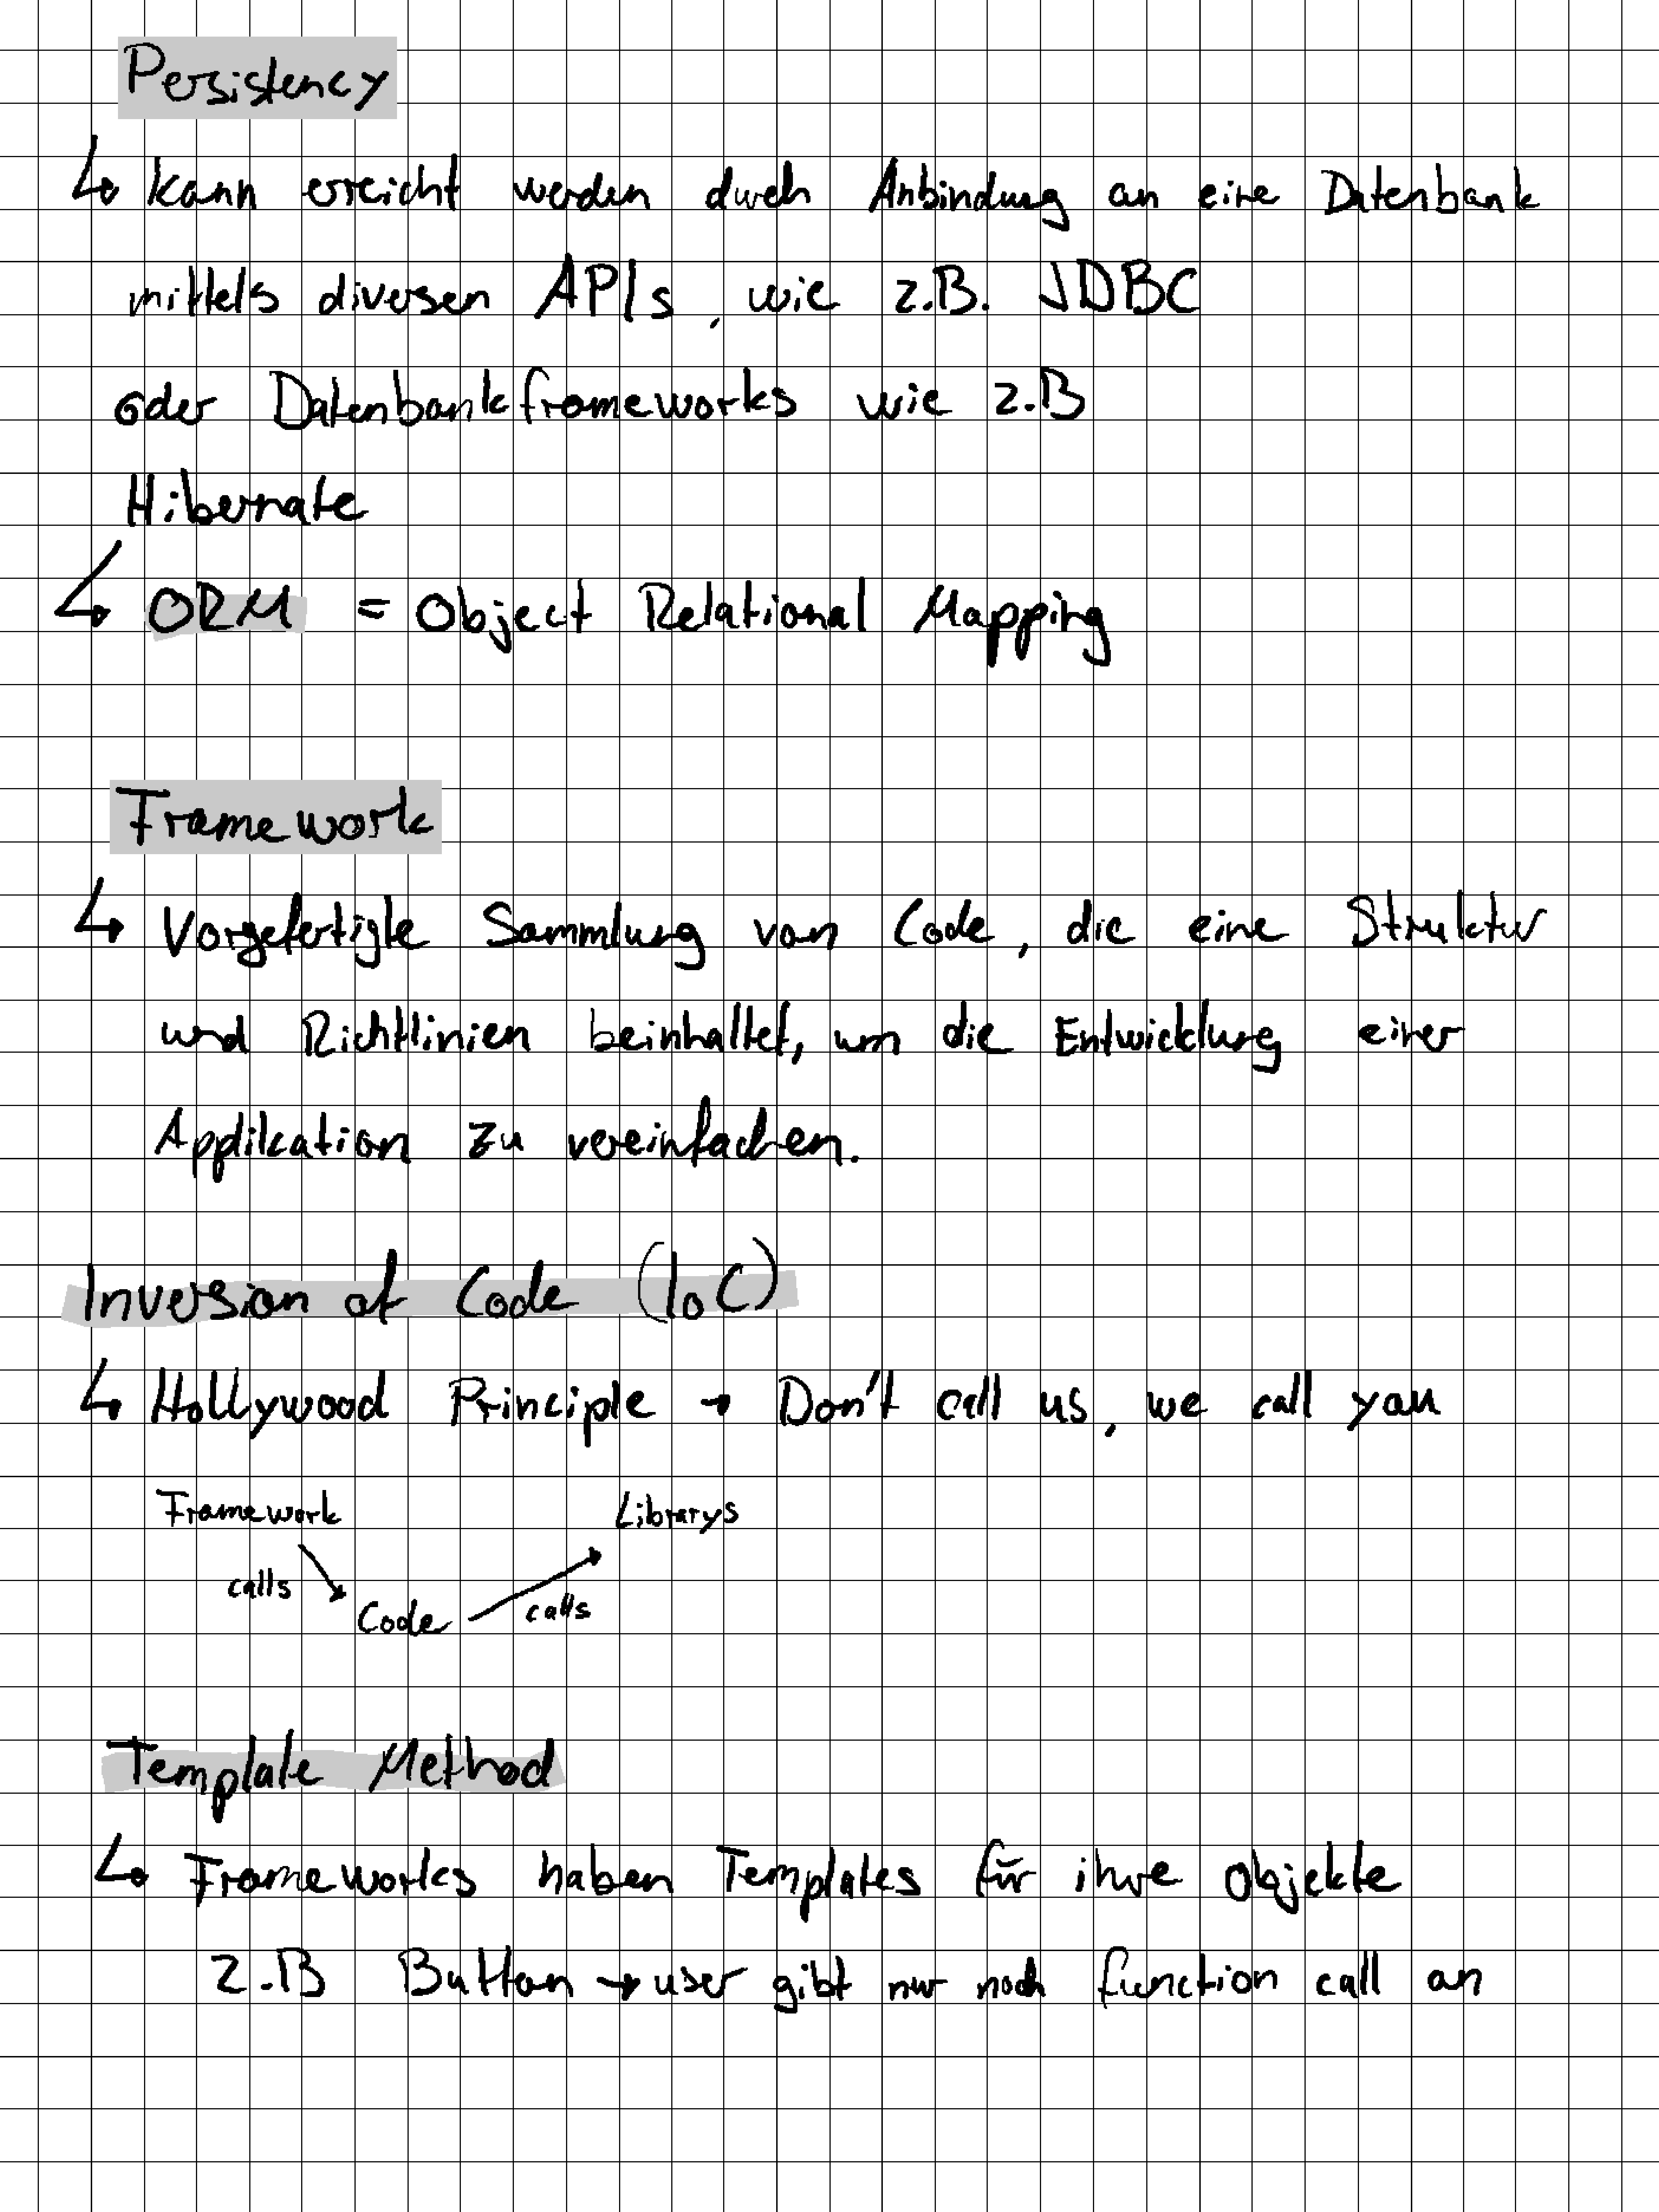 Persistency
↳ kann erreicht werden durch Anbindung an eine Datenbank
mittels diversen APIs, wie z.B. JDBC
oder Datenbankframeworks wie z.B
Hibernate
↳ ORM = Object Relational Mapping
Framework
↳ Vorgefertigte Sammlung von Code, die eine Struktur
und Richtlinien beinhaltet, um die Entwicklung einer
Applikation zu vereinfachen.
Inversion of Code (IoC)
↳ Hollywood Principle → Don't call us, we call you
Framework Librarys
calls calls
Code
Template Method
↳ Frameworks haben Templates für ihre Objekte
z.B Button → user gibt nur noch function call an